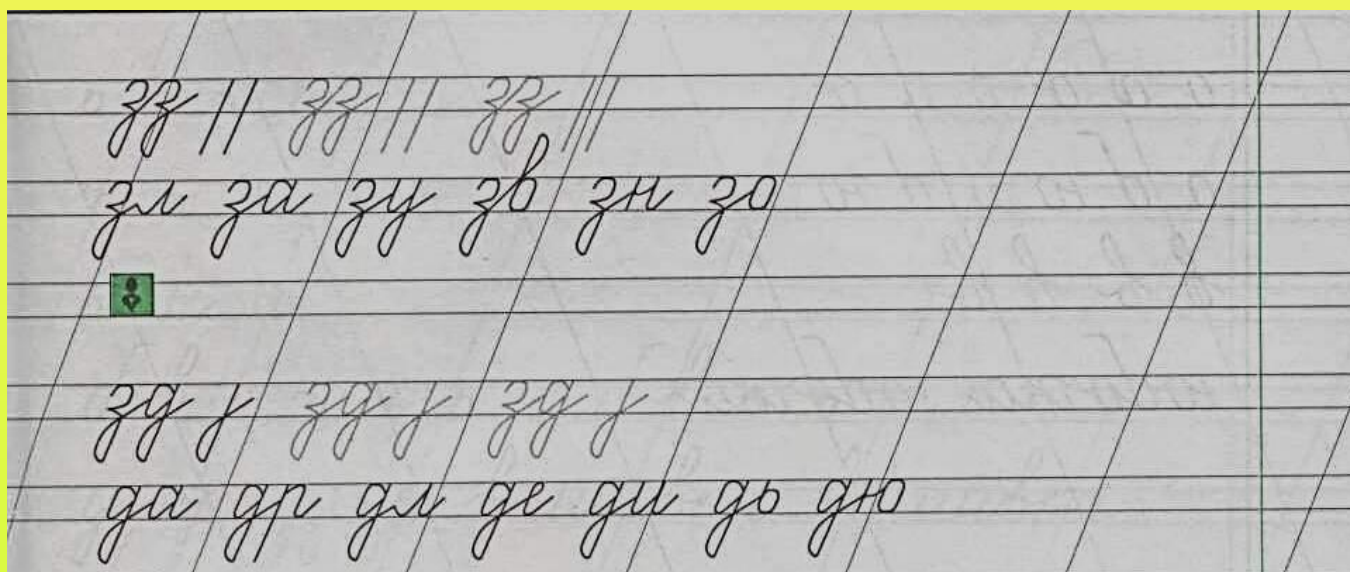 зз || зз || зз |||
зл за зу зв зн зо
зд ј зд ј зд ј
да др дл де ди дь дю